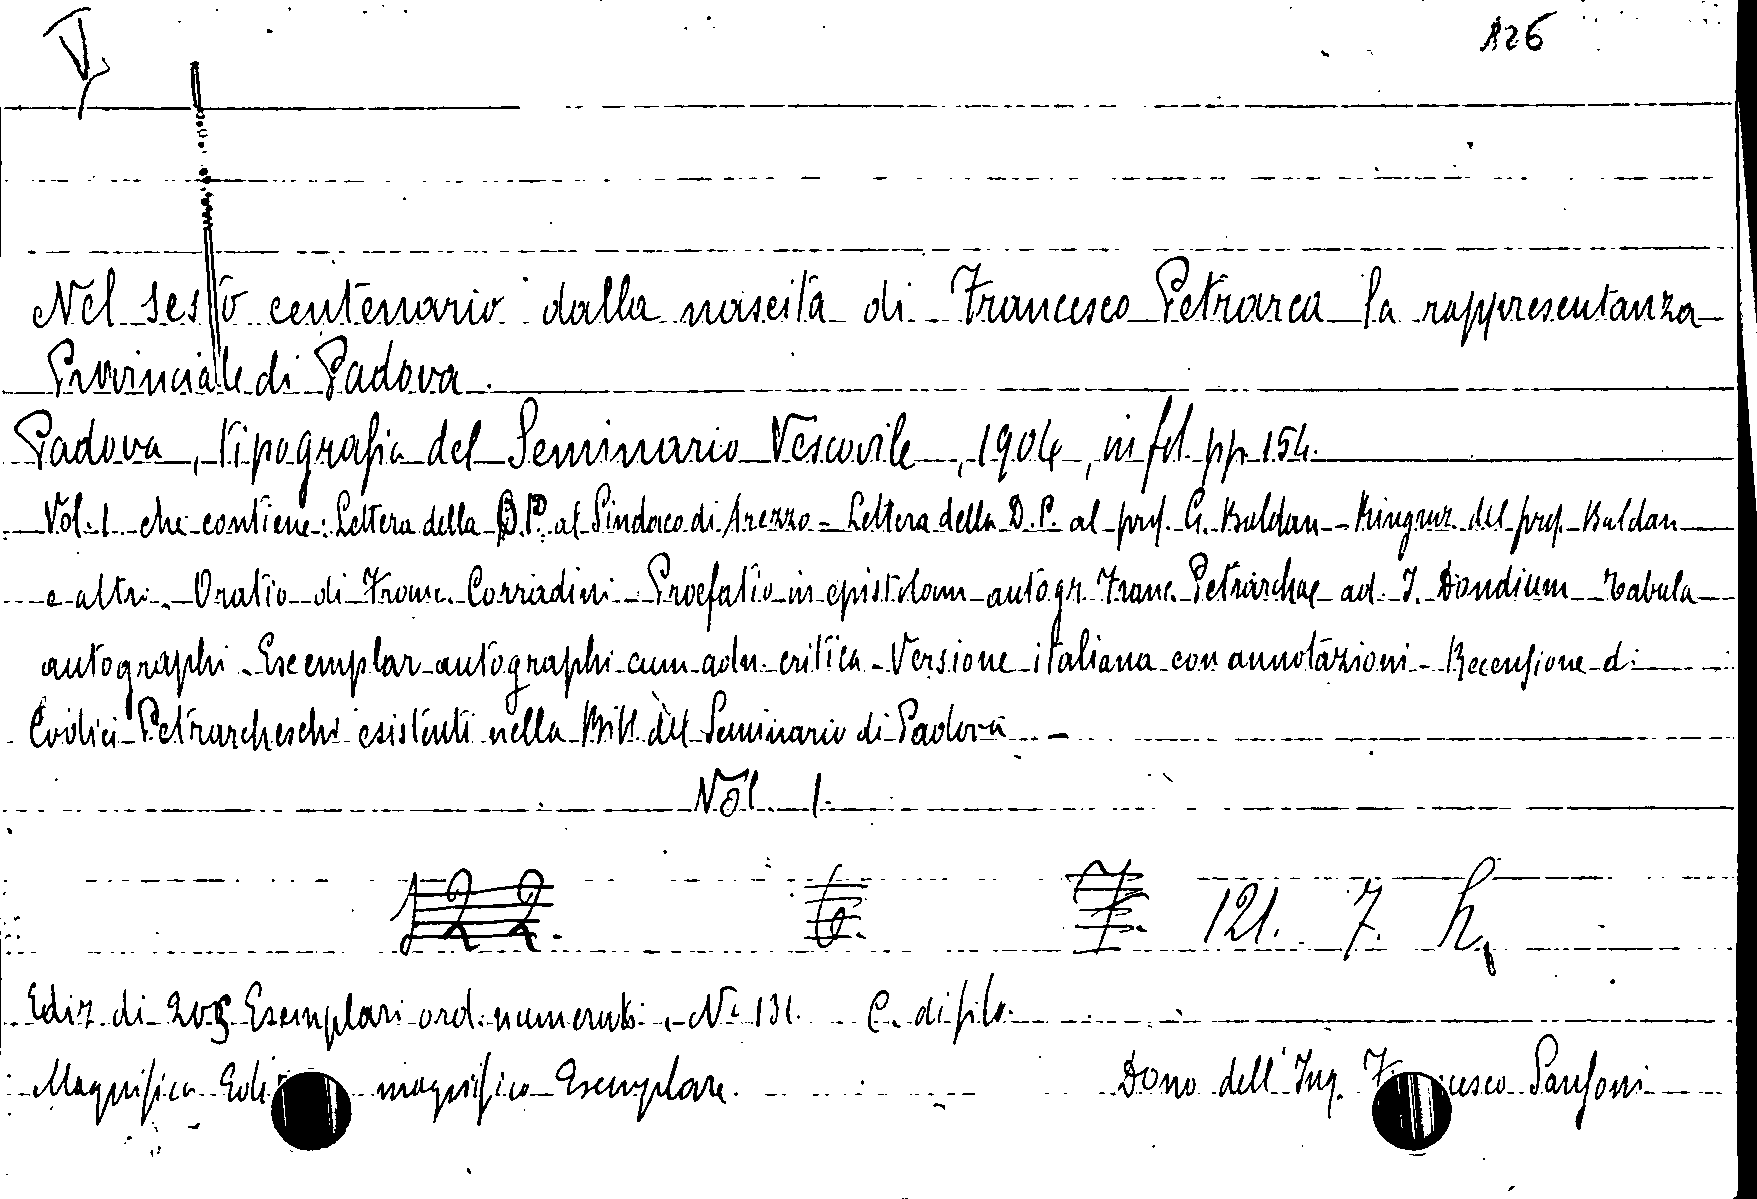 V,
126
Nel sesto centenario dalla nascita di Francesco Petrarca la rappresentanza
Provinciale di Padova.
Padova, Tipografia del Seminario Vescovile, 1904, in fol. pp. 154.
Vol. 1 che contiene: Lettera della D.P. al Sindaco di Arezzo - Lettera della D.P. al prof. G. Baldan - Ringraz. del prof. Baldan
e altri - Oratio di Franc. Corradini - Praefatio in epistolam autogr. Franc. Petrarchae ad I. Dondium - Tabula
autographi - Exemplar autographi cum adn. critica - Versione italiana con annotazioni - Recensione di
Codici Petrarcheschi esistenti nella Bibl. del Seminario di Padova -
Vol. 1.
122. 6. 7. 121. 7. h,
Ediz. di Esemplari ord. numerati. N. 131. C. di filo.
Magnifica magnifico Esemplare. Dono dell'Ing. Francesco Sansoni